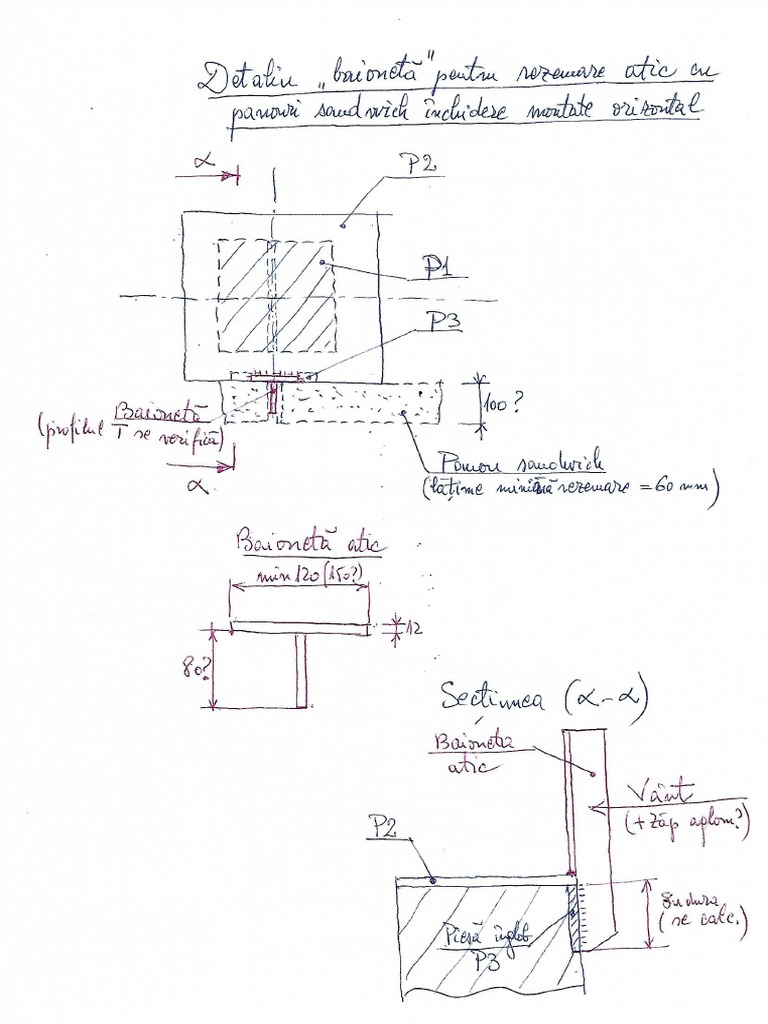 Detaliu „baionetă" pentru rezemare atic cu
panouri sandwich închidere montate orizontal
α
P2
P1
P3
Baionetă
(profilul T se verifică)
100?
α
Panou sandwich
(lățime minimă rezemare = 60 mm)
Baionetă atic
min 120 (150?)
12
80?
Secțiunea (α-α)
Baioneta
atic
Vânt
(+ zăp aglom?)
P2
Sudura
(se calc.)
Piesă înglob
P3